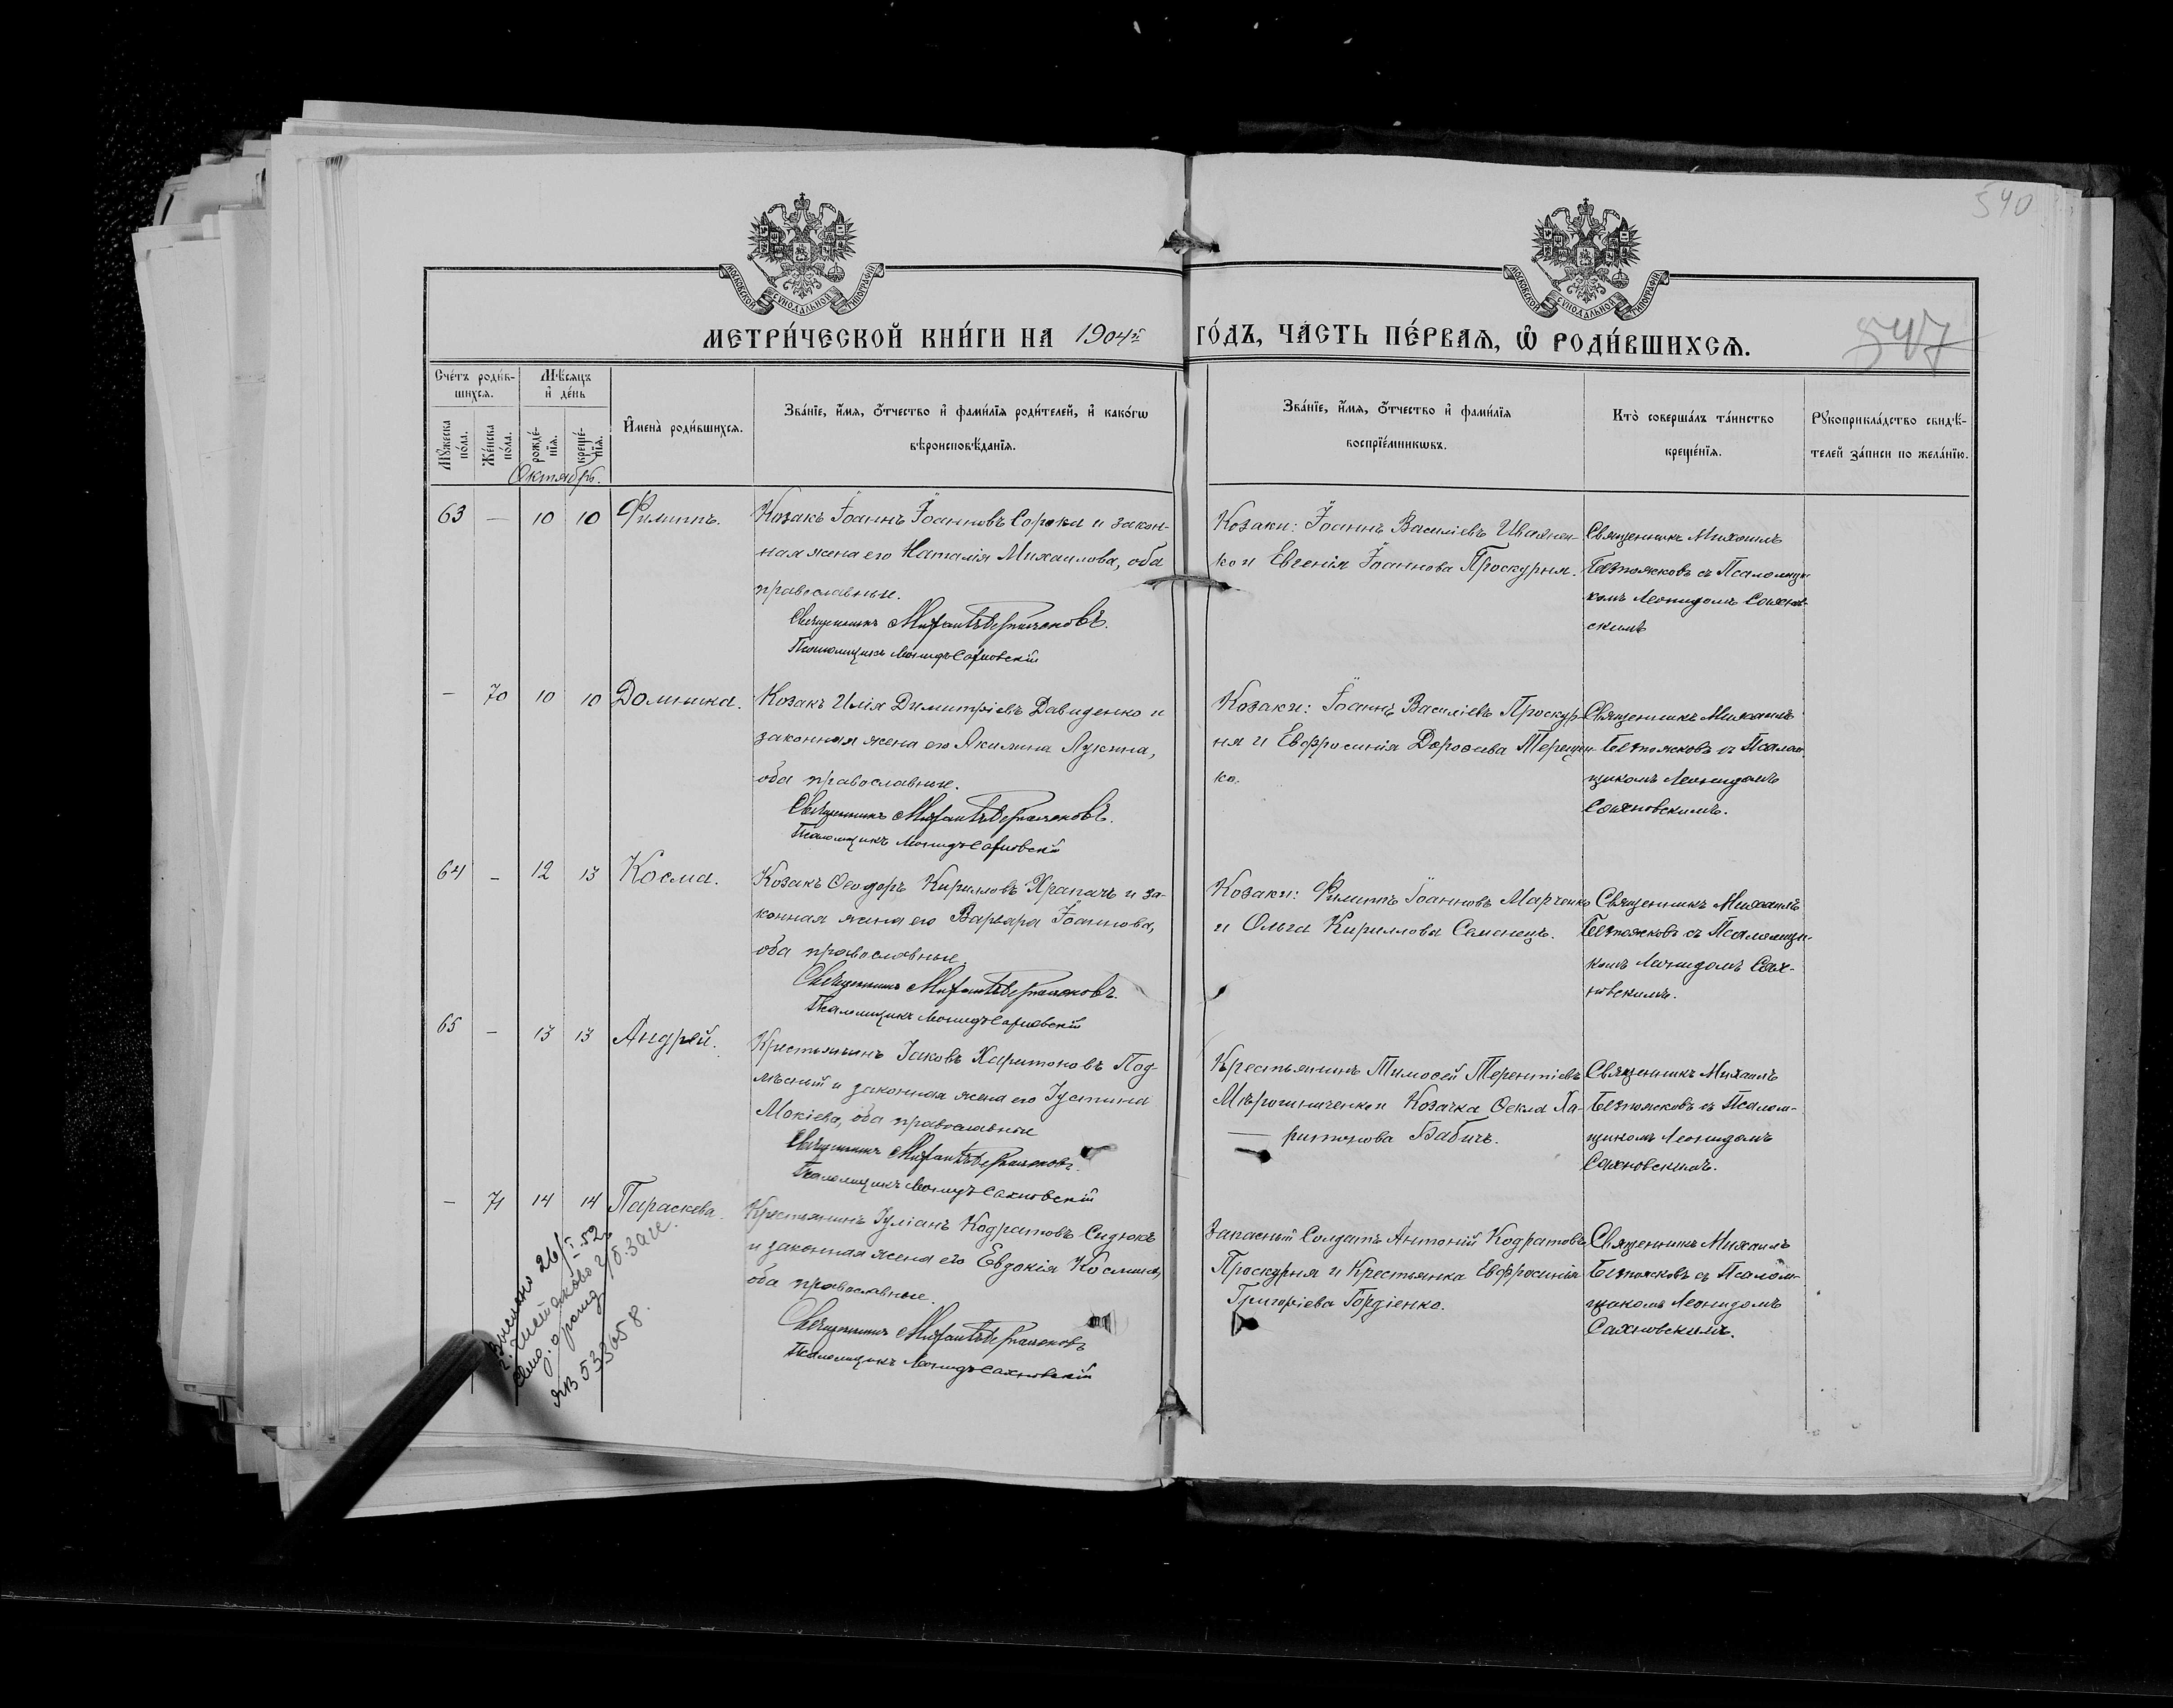 540
МОСКОВСКОЙ СѴНОДАЛЬНОЙ ТИПОГРАФІИ
МОСКОВСКОЙ СѴНОДАЛЬНОЙ ТИПОГРАФІИ
МЕТРИ́ЧЕСКОЙ КНИ́ГИ НА 1904й ГО́ДЪ, ЧА́СТЬ ПЕ́РВАѦ, Ѿ РОДИ́ВШИХСѦ.
547
Сче́тъ роди́вшихсѧ.
Мѣ́сѧцъ и҆ де́нь
И҆мена̀ роди́вшихсѧ.
Зва́нїе, и҆́мѧ, ѻ҆́тчество и҆ фами́лїѧ роди́телей, и҆ како́гѡ
вѣроисповѣ́данїѧ.
Зва́нїе, и҆́мѧ, ѻ҆́тчество и҆ фами́лїѧ
воспрїе́мникѡвъ.
Кто̀ соверша́лъ та́инство
креще́нїѧ.
Рꙋкоприкла́дство свидѣ́-
телей за́писи по жела́нїю.
Мꙋ́жеска по́ла.
Же́нска по́ла.
рожде́-нїѧ.
креще́-нїѧ.
Октябрь.
63 — 10 10 Филиппъ.
Козакъ Іоаннъ Іоанновъ Сорока и закон-
ная жена его Наталія Михаилова, оба
православные.
Священникъ Михаилъ Безпояковъ.
Псаломщикъ Леонидъ Сахновскій
Козаки: Іоаннъ Василіевъ Ивахнен-
ко и Евгенія Іоаннова Проскурня.
Священникъ Михаилъ
Безпояковъ съ Псаломщи-
комъ Леонидомъ Сахнов-
скимъ
— 70 10 10 Домника.
Козакъ Илія Димитріевъ Давиденко и
законная жена его Акилина Лукина,
оба православные.
Священникъ Михаилъ Безпояковъ.
Псаломщикъ Леонидъ Сахновскій
Козаки: Іоаннъ Василіевъ Проскур-
ня и Евфросинія Дороѳева Терещен-
ко.
Священникъ Михаилъ
Безпояковъ съ Псалом-
щикомъ Леонидомъ
Сахновскимъ.
64 — 12 13 Косма.
Козакъ Ѳеодоръ Кирилловъ Храпачъ и за-
конная жена его Варвара Іоаннова,
оба православные.
Священникъ Михаилъ Безпояковъ.
Псаломщикъ Леонидъ Сахновскій
Козаки: Филиппъ Іоанновъ Марченко
и Ольга Кириллова Семенецъ.
Священникъ Михаилъ
Безпояковъ съ Псаломщи-
комъ Леонидомъ Сах-
новскимъ.
65 — 13 13 Андрей.
Крестьянинъ Іаковъ Харитоновъ Под-
лѣсный и законная жена его Іустина
Мокіева, оба православные
Священникъ Михаилъ Безпояковъ.
Псаломщикъ Леонидъ Сахновскій
Крестьянинъ Тимоѳей Терентіевъ
Мѣрошниченко и Козачка Ѳекла Ха-
— ритонова Бабичъ.
Священникъ Михаилъ
Безпояковъ съ Псалом-
щикомъ Леонидомъ
Сахновскимъ.
— 71 14 14 Параскева.
Крестьянинъ Іуліанъ Кодратовъ Сидюкъ
и законная жена его Евдокія Космина,
оба православные.
Священникъ Михаилъ Безпояковъ
Псаломщикъ Леонидъ Сахновскій
Запасный Солдатъ Антоній Кодратовъ
Проскурня и Крестьянка Евфросинія
Григоріева Гордіенко.
Священникъ Михаилъ
Безпояковъ съ Псалом-
щикомъ Леонидомъ
Сахновскимъ.
Выслано 26/I-52